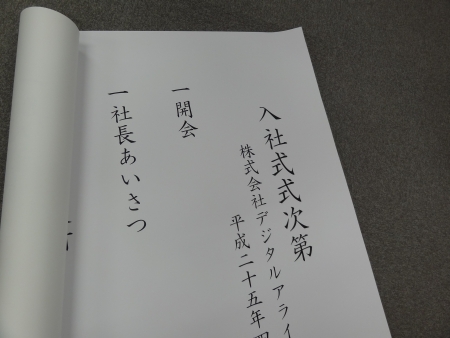 入社式式次第
株式会社デジタルアライ
平成二十五年四
一開会
一社長あいさつ